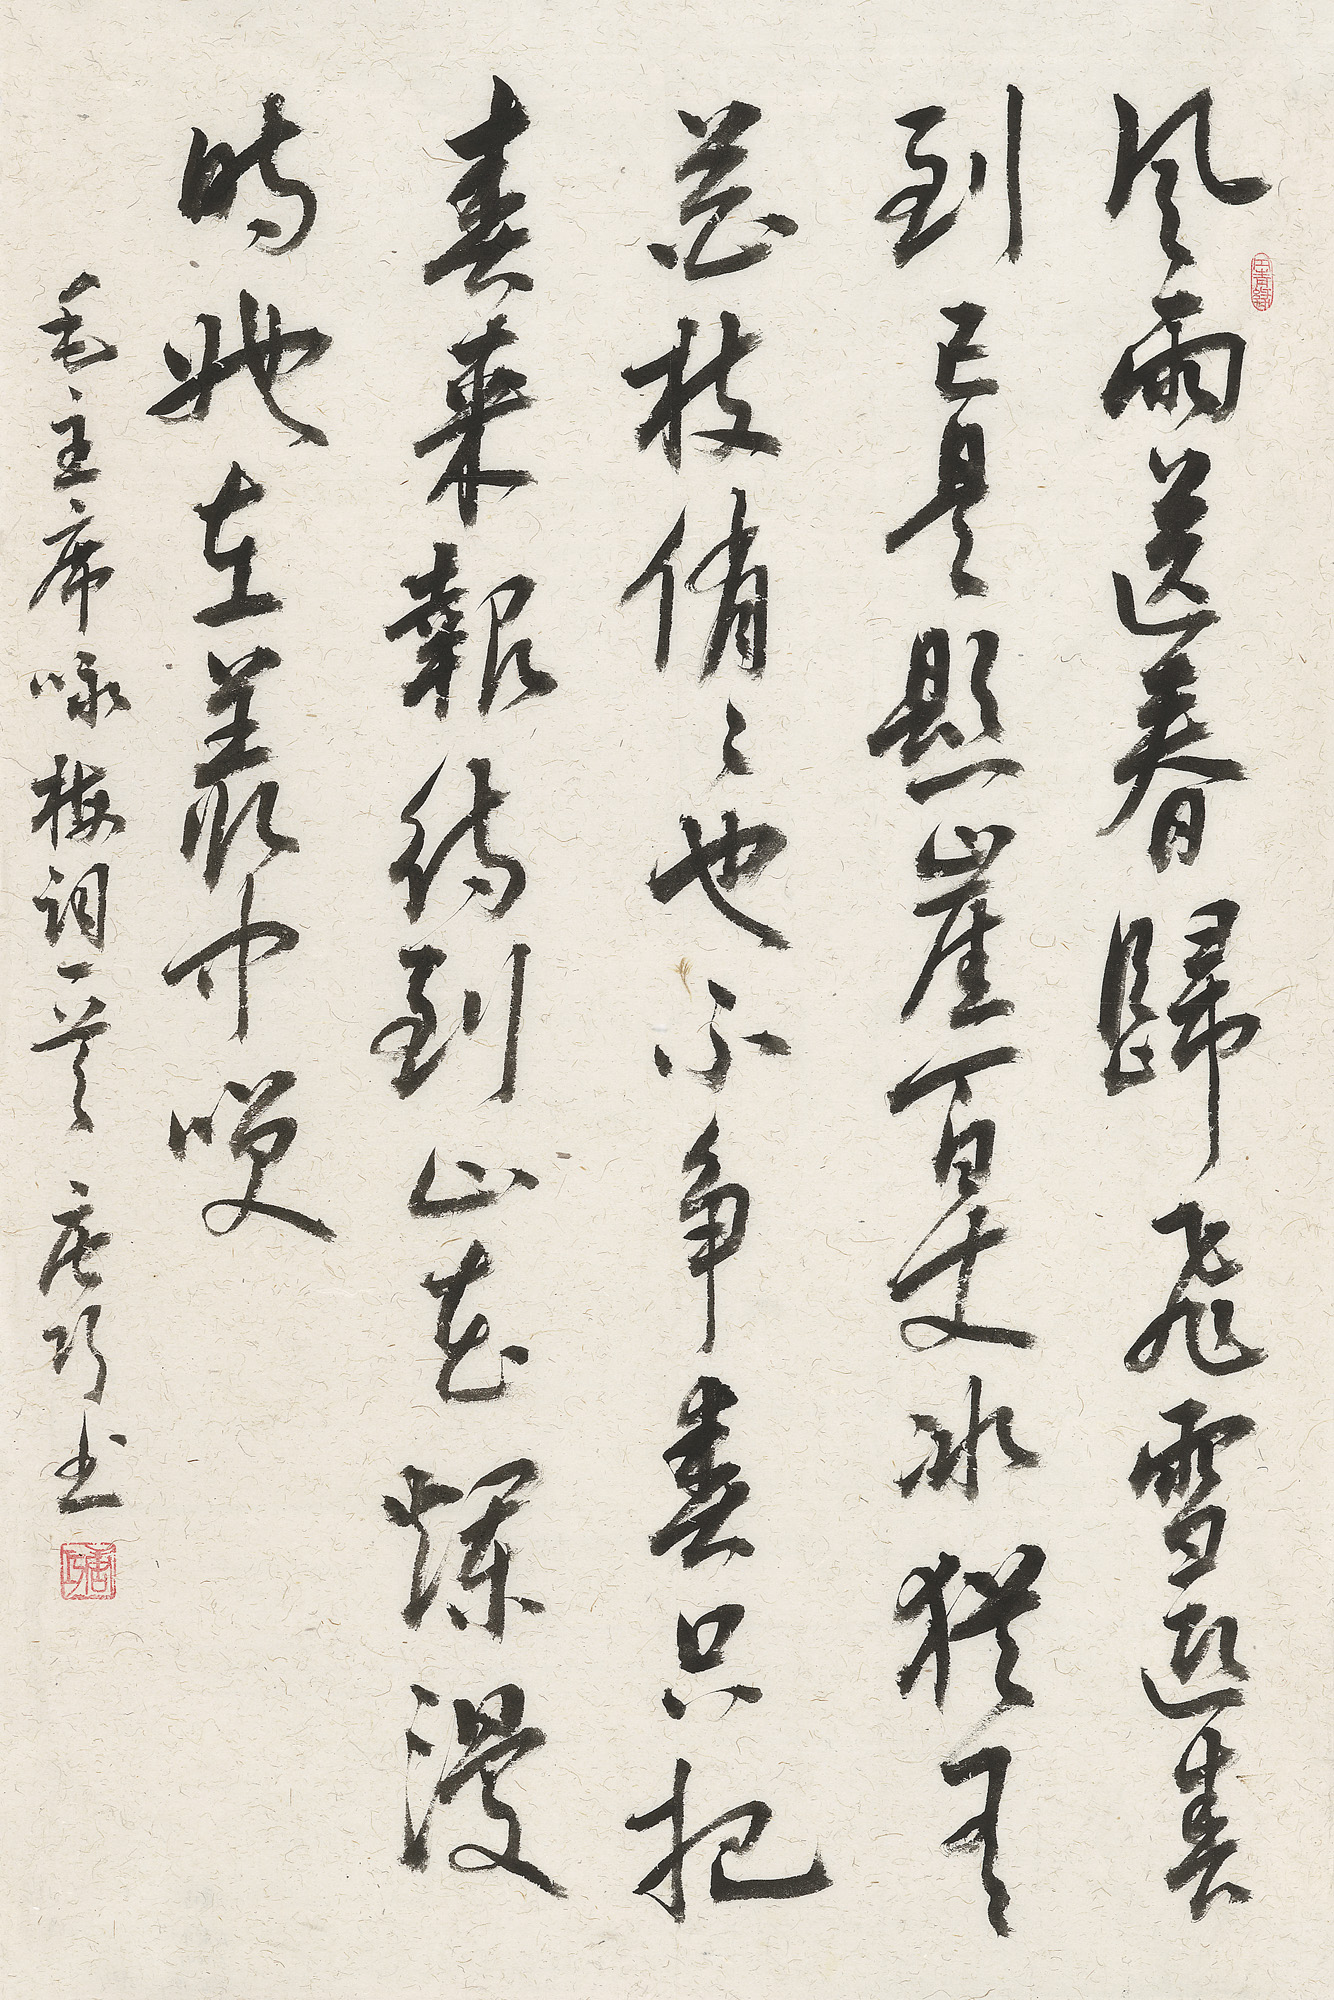 风雨送春歸飛雪迎春
到已是懸崖百丈冰猶有
花枝俏〻也不争春只把
春來報待到山花爛漫
時她在叢中咲
毛主席咏梅词一首 唐巧书
唐巧